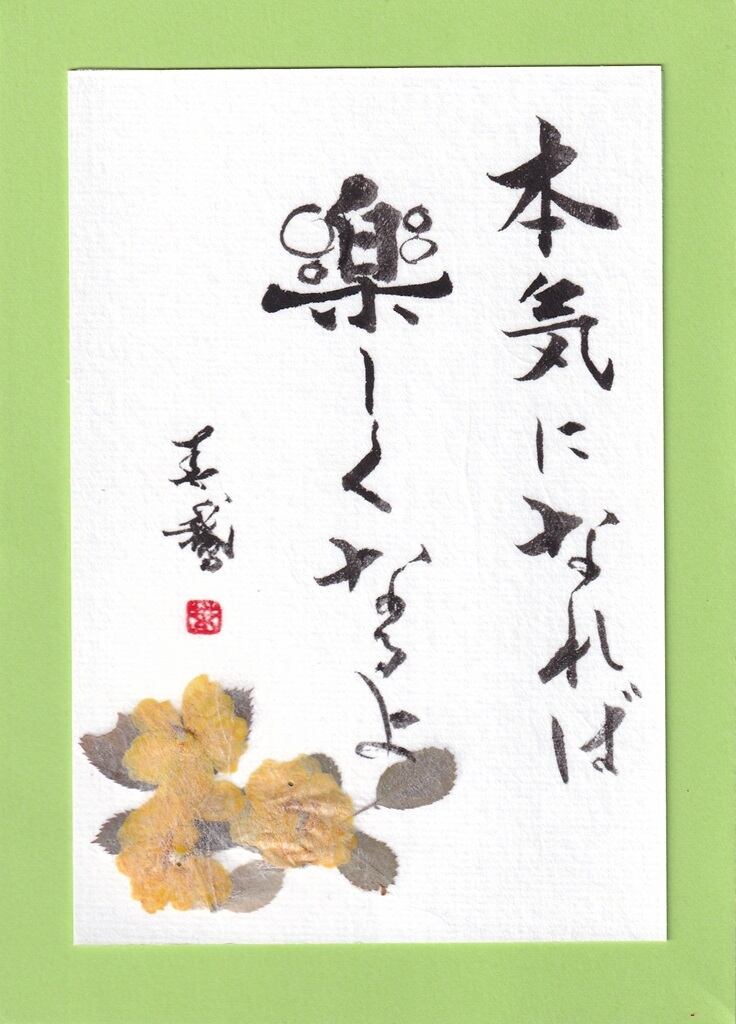 本気になれば
楽しくなるよ